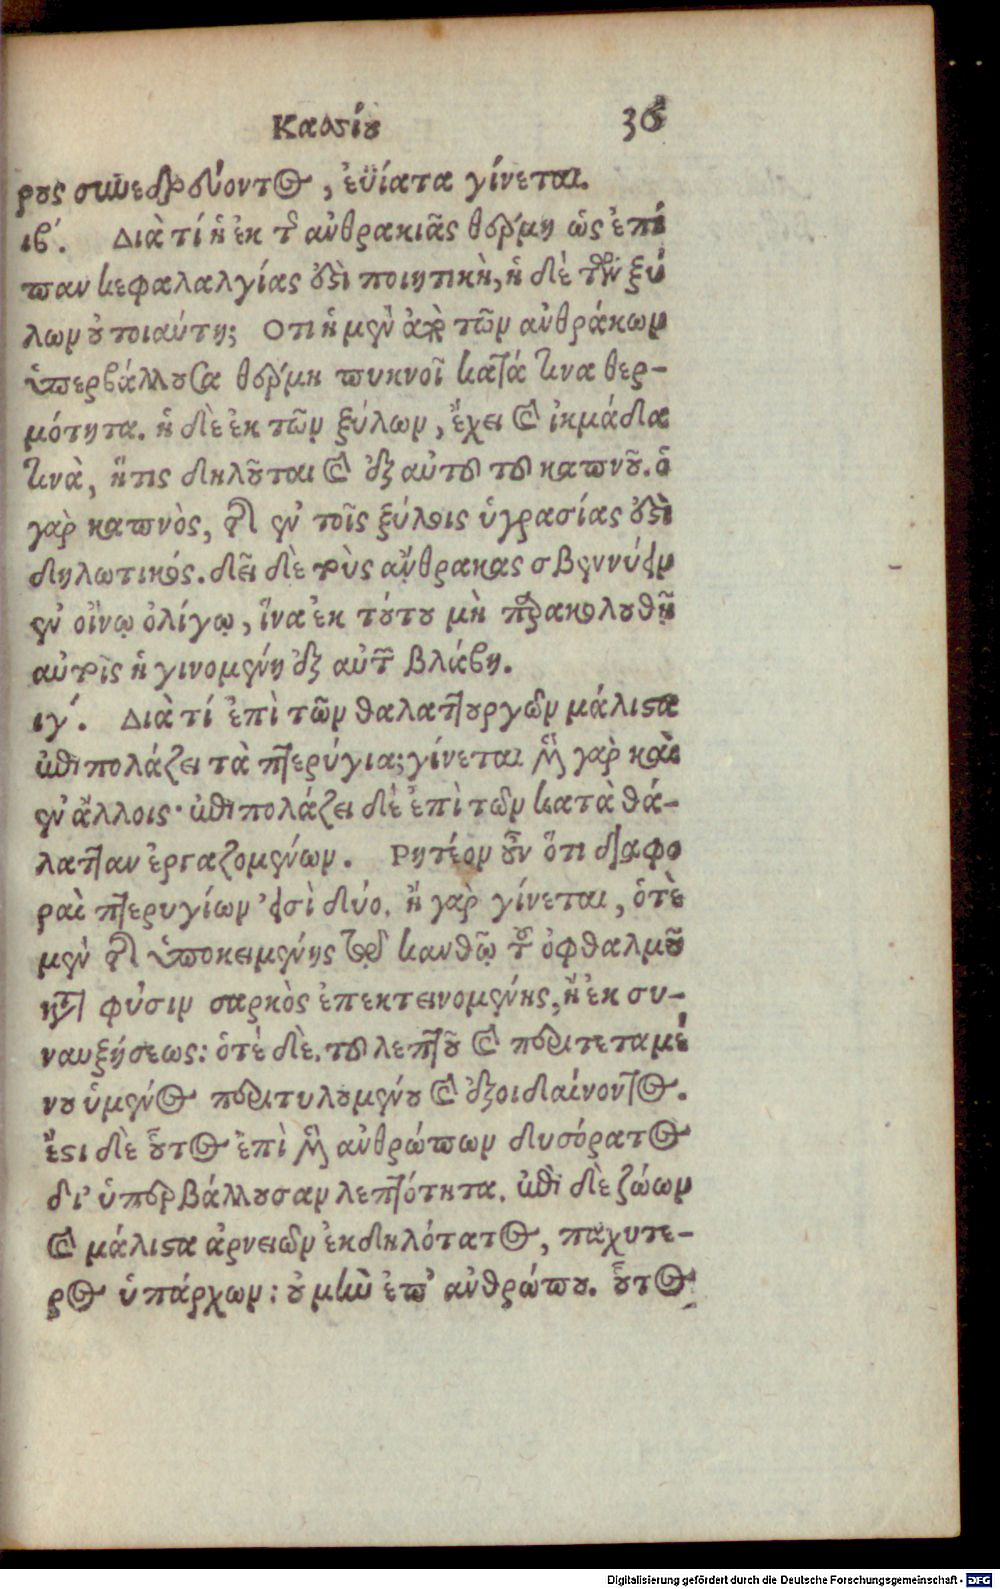 Κασσίου 36
ρους συνεδρεύοντος, εὐίατα γίνεται.
ιβ΄. Διὰ τί ἡ ἐκ τῆς ἀνθρακιᾶς θέρμη ὡς ἐπί
παν κεφαλαλγίας ἐστὶ ποιητικὴ, ἡ δὲ τῶν ξύ
λων οὐ τοιαύτη; Οτι ἡ μὲν ἀπὸ τῶν ἀνθράκων
ὑπερβάλλουσα θέρμη πυκνοῖ κατά τινα θερ-
μότητα. ἡ δὲ ἐκ τῶν ξύλων, ἔχει καὶ ἰκμάδα
τινὰ, ἥτις δηλοῦται καὶ ἐξ αὐτοῦ τοῦ καπνοῦ. ὁ
γὰρ καπνὸς, τῆς ἐν τοῖς ξύλοις ὑγρασίας ἐστὶ
δηλωτικός. δεῖ δὲ τοὺς ἄνθρακας σβεννύειν
ἐν οἴνῳ ὀλίγῳ, ἵνα ἐκ τούτου μὴ παρακολουθῇ
αὐτοῖς ἡ γινομένη ἐξ αὐτῶν βλάβη.
ιγ΄. Διὰ τί ἐπὶ τῶν θαλαττουργῶν μάλιστα
ἐπιπολάζει τὰ πτερύγια; γίνεται μὲν γὰρ καὶ
ἐν ἄλλοις· ἐπιπολάζει δὲ ἐπὶ τῶν κατὰ θά-
λατταν ἐργαζομένων. Ρητέον οὖν ὅτι διαφο
ραὶ πτερυγίων εἰσὶ δύο. ἢ γὰρ γίνεται, ὁτὲ
μὲν τῆς ὑποκειμένης τῷ κανθῷ τοῦ ὀφθαλμοῦ
κατὰ φύσιν σαρκὸς ἐπεκτεινομένης, ἢ ἐκ συ-
ναυξήσεως: ὁτὲ δὲ, τοῦ λεπτοῦ καὶ περιτεταμέ
νου ὑμένος περιτυλουμένου καὶ ἐξοιδαίνοντος.
ἔστι δὲ οὗτος ἐπὶ μὲν ἀνθρώπων δυσόρατος
δι' ὑπερβάλλουσαν λεπτότητα. ἐπὶ δὲ ζώων
καὶ μάλιστα ἀρνειῶν ἐκδηλότατος, παχυτε-
ρος ὑπάρχων: οὐ μὴν ἐπ' ἀνθρώπου. οὗτος
Digitalisierung gefördert durch die Deutsche Forschungsgemeinschaft - DFG